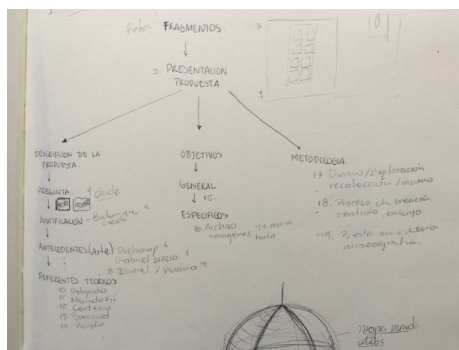 Fotos FRAGMENTOS
3. PRESENTACION
PROPUESTA
DESCRIPCION DE LA
PROPUESTA.
PREGUNTA 4 chicle
JUSTIFICACION
ANTECEDENTES (Arte) Duchamp
Gabriel Orozco
8 Daniel / Viviana 9
REFERENTES TEÓRICOS
10 Delgado
11 Mandoki
12 Certeau
14 Pardo
OBJETIVOS
GENERAL
15.
ESPECIFICOS
16 Archivo
imagenes
todo
METODOLOGIA.
17 Diario / Exploración
recolección /
18. Proceso de creación
sentido, ensayo
19. Puesta en escena
museografica.
Mapa mundi